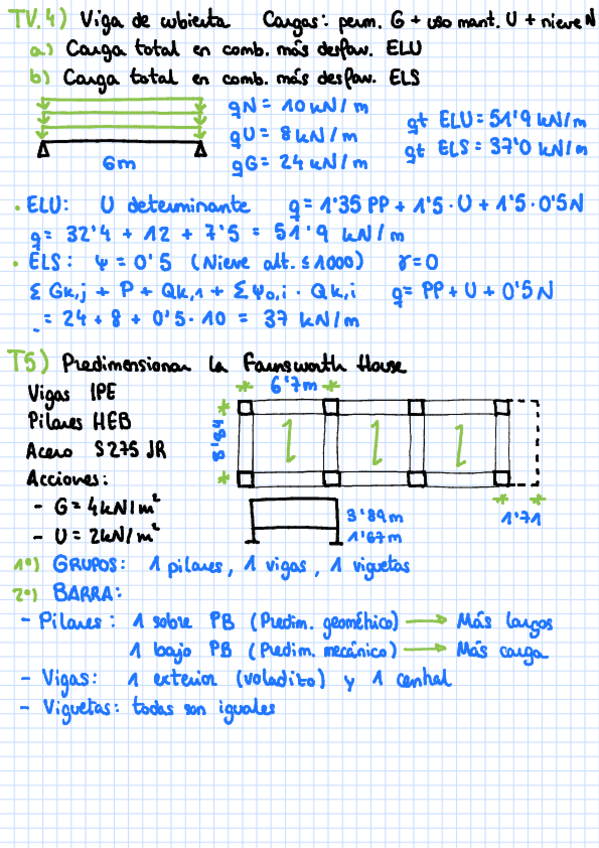 TV.4) Viga de cubierta Cargas: perm. G + uso mant. U + nieve N
a) Carga total en comb. más desfav. ELU
b) Carga total en comb. más desfav. ELS
qN = 10 kN/m
qU = 8 kN/m
qG = 24 kN/m
qt ELU = 51'9 kN/m
qt ELS = 37'0 kN/m
6m
• ELU: U determinante q = 1'35 PP + 1'5 · U + 1'5 · 0'5 N
q = 32'4 + 12 + 7'5 = 51'9 kN/m
• ELS: Ψ = 0'5 (Nieve alt. ≤ 1000) γ = 0
Σ Gk,j + P + Qk,1 + Σ Ψ0,i · Qk,i q = PP + U + 0'5 N
= 24 + 8 + 0'5 · 10 = 37 kN/m
T5) Predimensionar la Farnsworth House
Vigas IPE
Pilares HEB
Acero S275 JR
Acciones:
- G = 4 kN/m²
- U = 2 kN/m²
6'7m
8'84
3'89m
1'67m
1'71
1º) GRUPOS: 1 pilares, 1 vigas, 1 viguetas
2º) BARRA:
- Pilares: 1 sobre PB (Predim. geométrico) → Más largos
1 bajo PB (Predim. mecánico) → Más carga
- Vigas: 1 exterior (voladizo) y 1 central
- Viguetas: todas son iguales